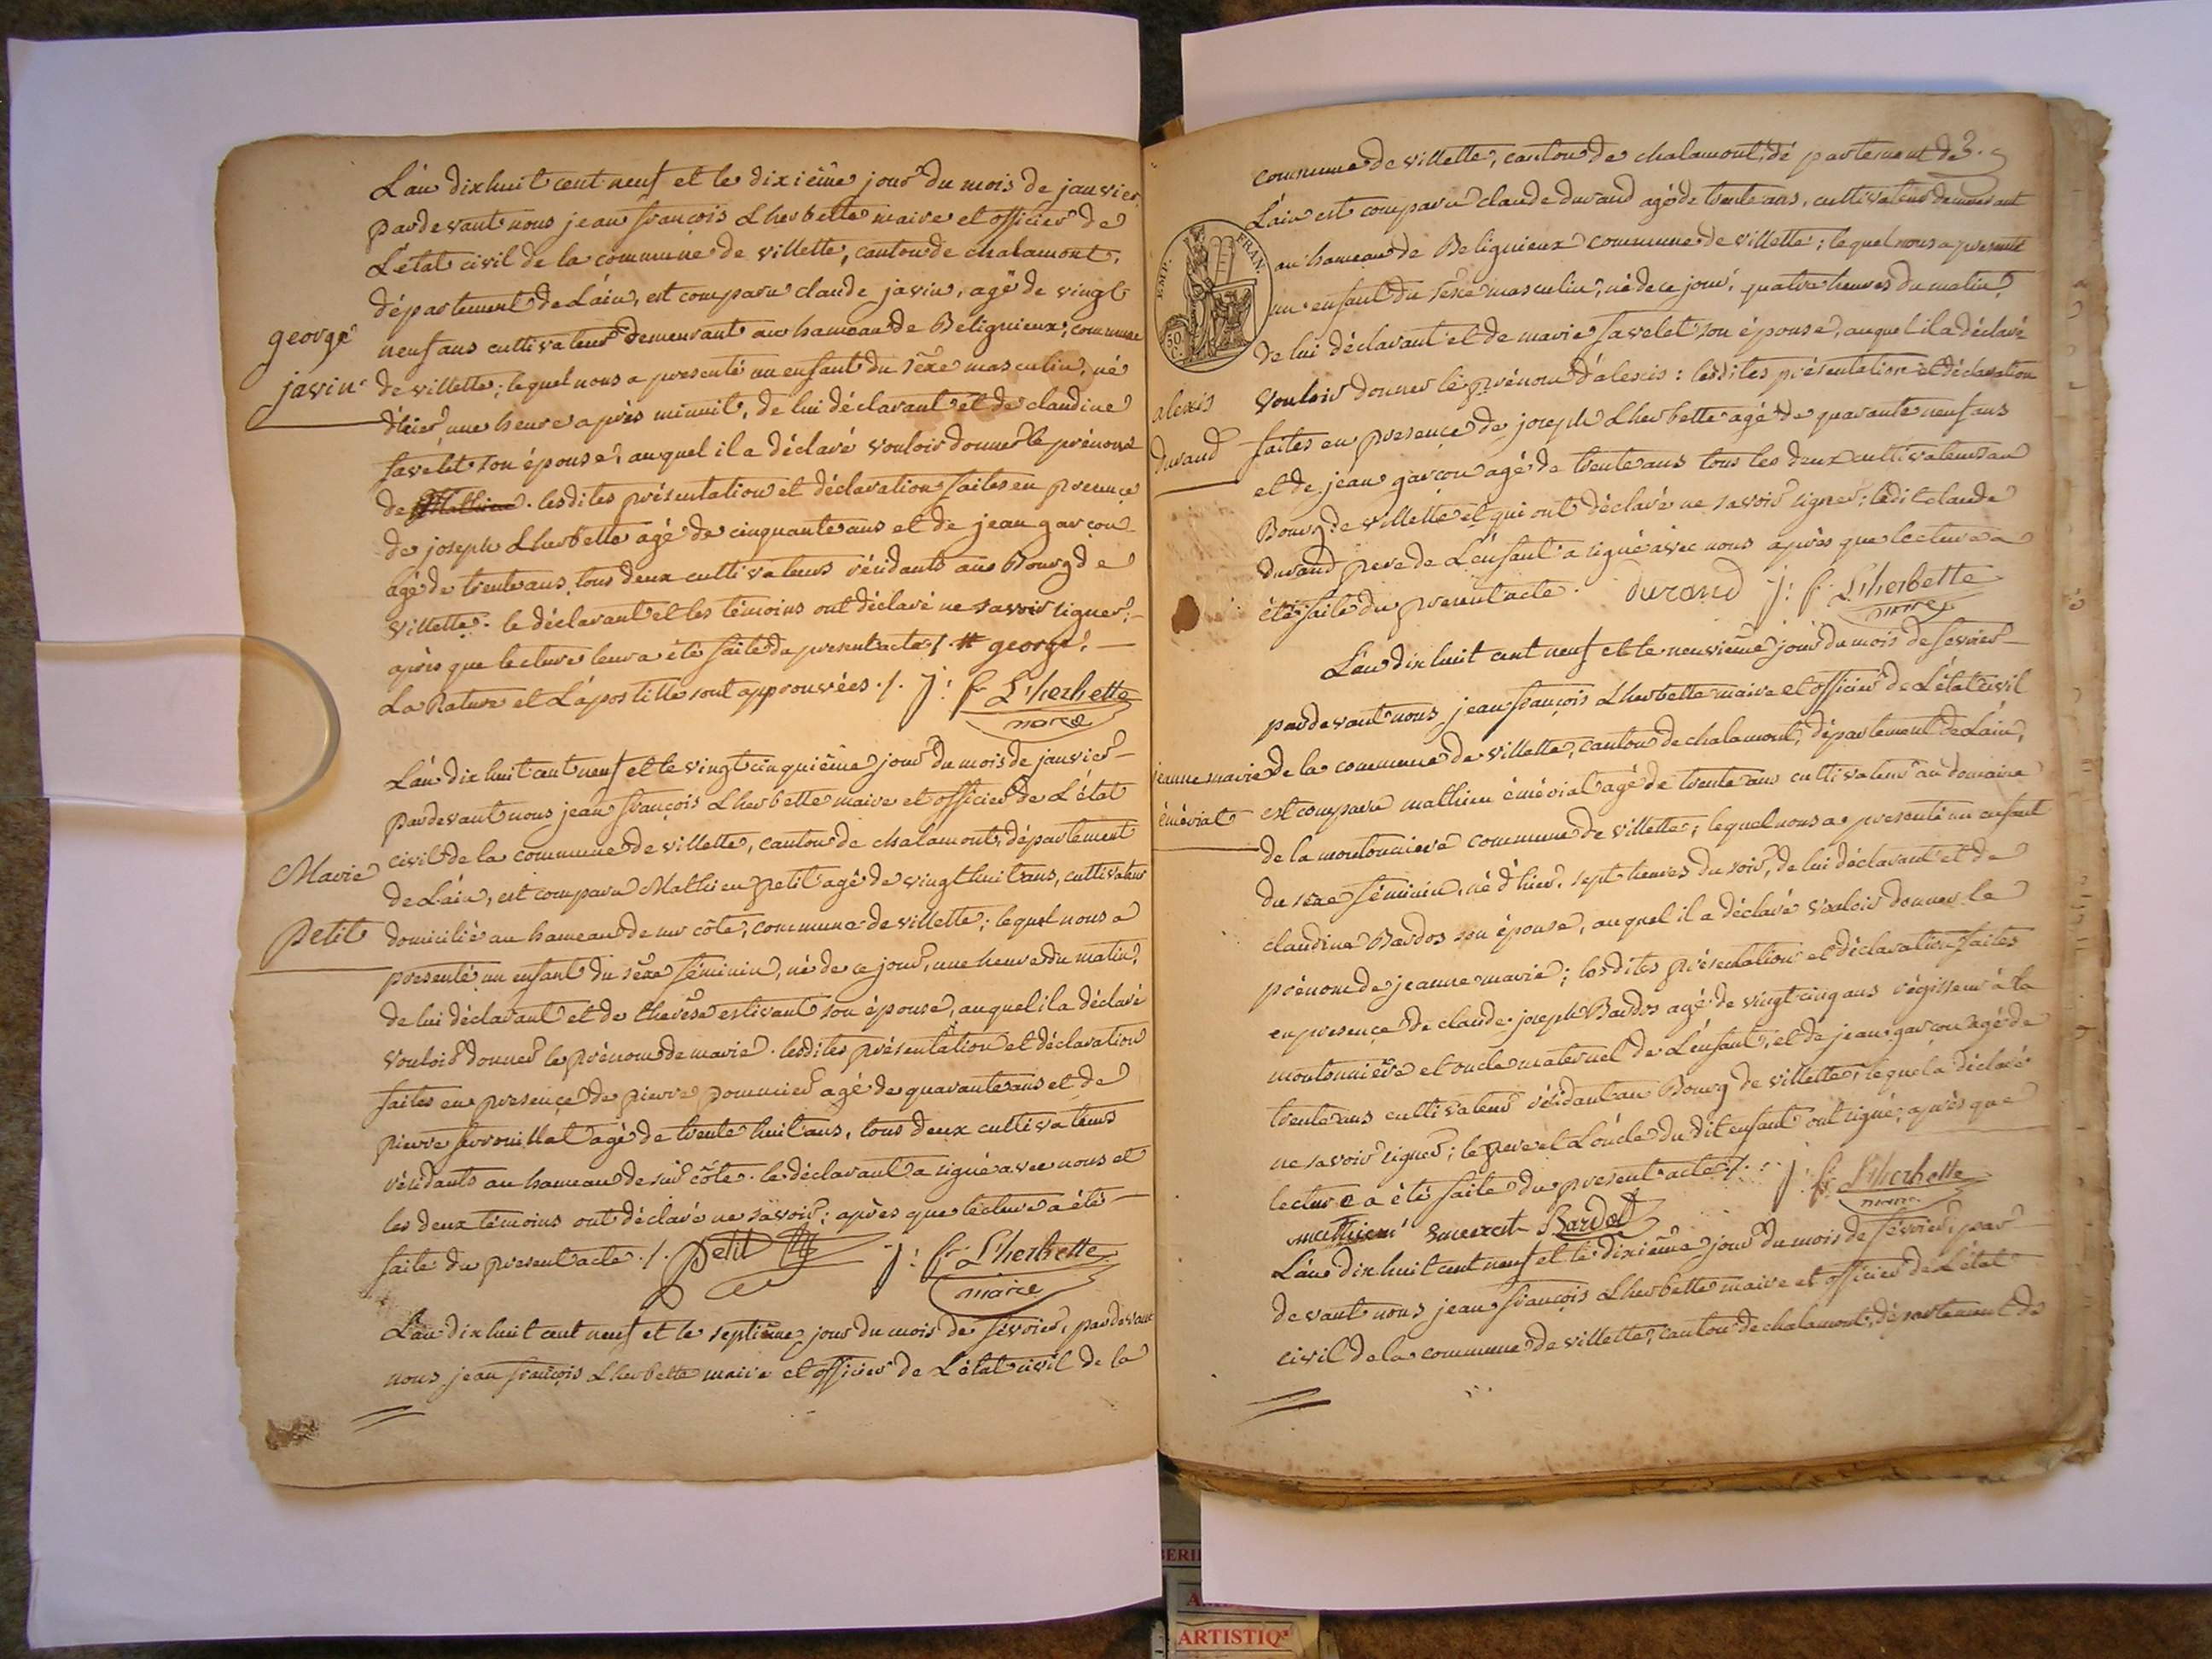 L'an dix huit cent neuf et le dixième jour du mois de janvier
pardevant nous jean françois Lherbette maire et officier de
L'état civil de la commune de villette, canton de chalamont,
département de L'ain, est comparu claude javin, agé de vingt
george
neuf ans cultivateur demeurant au hameau de Beliguieux, commune
javin
de villette; lequel nous a presenté un enfant du séxe masculin, né
d'hier, une heure après minuit, de lui déclarant et de claudine
favelet son épouse, auquel il a déclaré vouloir donner le prénom
de Mathieu. lesdites présentation et déclaration faites en presence
de joseph Lherbette agé de cinquante ans et de jean garçon
agé de trente ans, tous deux cultivateurs résidants au Bourg de
villette. le déclarant et les témoins ont déclaré ne savoir signer,
après que lecture leur a été faite du present acte /. # george.
La Rature et L'apostille sont approuvées ./. j: f Lherbette
maire
L'an dix huit cent neuf et le vingt cinquième jour du mois de janvier
pardevant nous jean françois Lherbette maire et officier de L'état
civil de la commune de villette, canton de chalamont, département
Marie
de L'ain, est comparu Mathieu petit agé de vingt huit ans, cultivateur
petit
domicilié au hameau de sur côte, commune de villette; lequel nous a
presenté un enfant du séxe féminin, né de ce jour, une heure du matin,
de lui déclarant et de therèse estivant son épouse, auquel il a déclaré
vouloir donner le prénom de marie. lesdites présentation et déclaration
faites en presence de pierre pommier agé de quarante ans et de
pierre ferrouillat agé de trente huit ans, tous deux cultivateurs
résidants au hameau de sur côte. le déclarant a signé avec nous et
les deux témoins ont déclaré ne savoir; après que lecture a été
faite du present acte ./. Petit j: f Lherbette
maire
L'an dix huit cent neuf et le septième jour du mois de fevrier, pardevant
nous jean françois Lherbette maire et officier de L'état civil de la
commune de villette, canton de chalamont, département de
L'ain est comparu claude durand agé de trente ans, cultivateur demeurant
EMP. FRAN.
50 C.
au hameau de Beliguieux commune de villette; lequel nous a presenté
un enfant du séxe masculin, né de ce jour, quatre heures du matin,
de lui déclarant et de marie favelet son épouse, auquel il a déclaré
alexis
vouloir donner le prénom d'alexis: lesdites présentation et déclaration
durand
faites en presence de joseph Lherbette agé de quarante neuf ans
et de jean garçon agé de trente ans tous les deux cultivateurs au
Bourg de villette et qui ont déclaré ne savoir signer; ledit claude
durand pere de L'enfant a signé avec nous après que lecture a
été faite du present acte. durand j: f Lherbette
maire
L'an dix huit cent neuf et le neuvième jour du mois de fevrier
pardevant nous jean françois Lherbette maire et officier de L'état civil
jeanne marie
de la commune de villette, canton de chalamont, département de L'ain,
éméviat
est comparu mathieu éméviat agé de trente ans cultivateur au domaine
de la moutonniere commune de villette; lequel nous a presenté un enfant
du sexe féminin, né d'hier, sept heures du soir, de lui déclarant et de
claudine Bardos son épouse, auquel il a déclaré vouloir donner le
prénom de jeanne marie; lesdites présentation et déclaration faites
en presence de claude joseph Bardos agé de vingt cinq ans régisseur à la
moutonnière et oncle maternel de L'enfant, et de jean garçon agé de
trente ans cultivateur résidant au Bourg de villette, lequel a déclaré
ne savoir signer; le pere et L'oncle du dit enfant ont signé; après que
lecture a été faite du present acte ./. j: f: Lherbette
maire
Bardot
L'an dix huit cent neuf et le dixième jour du mois de février, par
devant nous jean françois Lherbette maire et officier de L'état
civil de la commune de villette, canton de chalamont, département de
ARTISTIQ